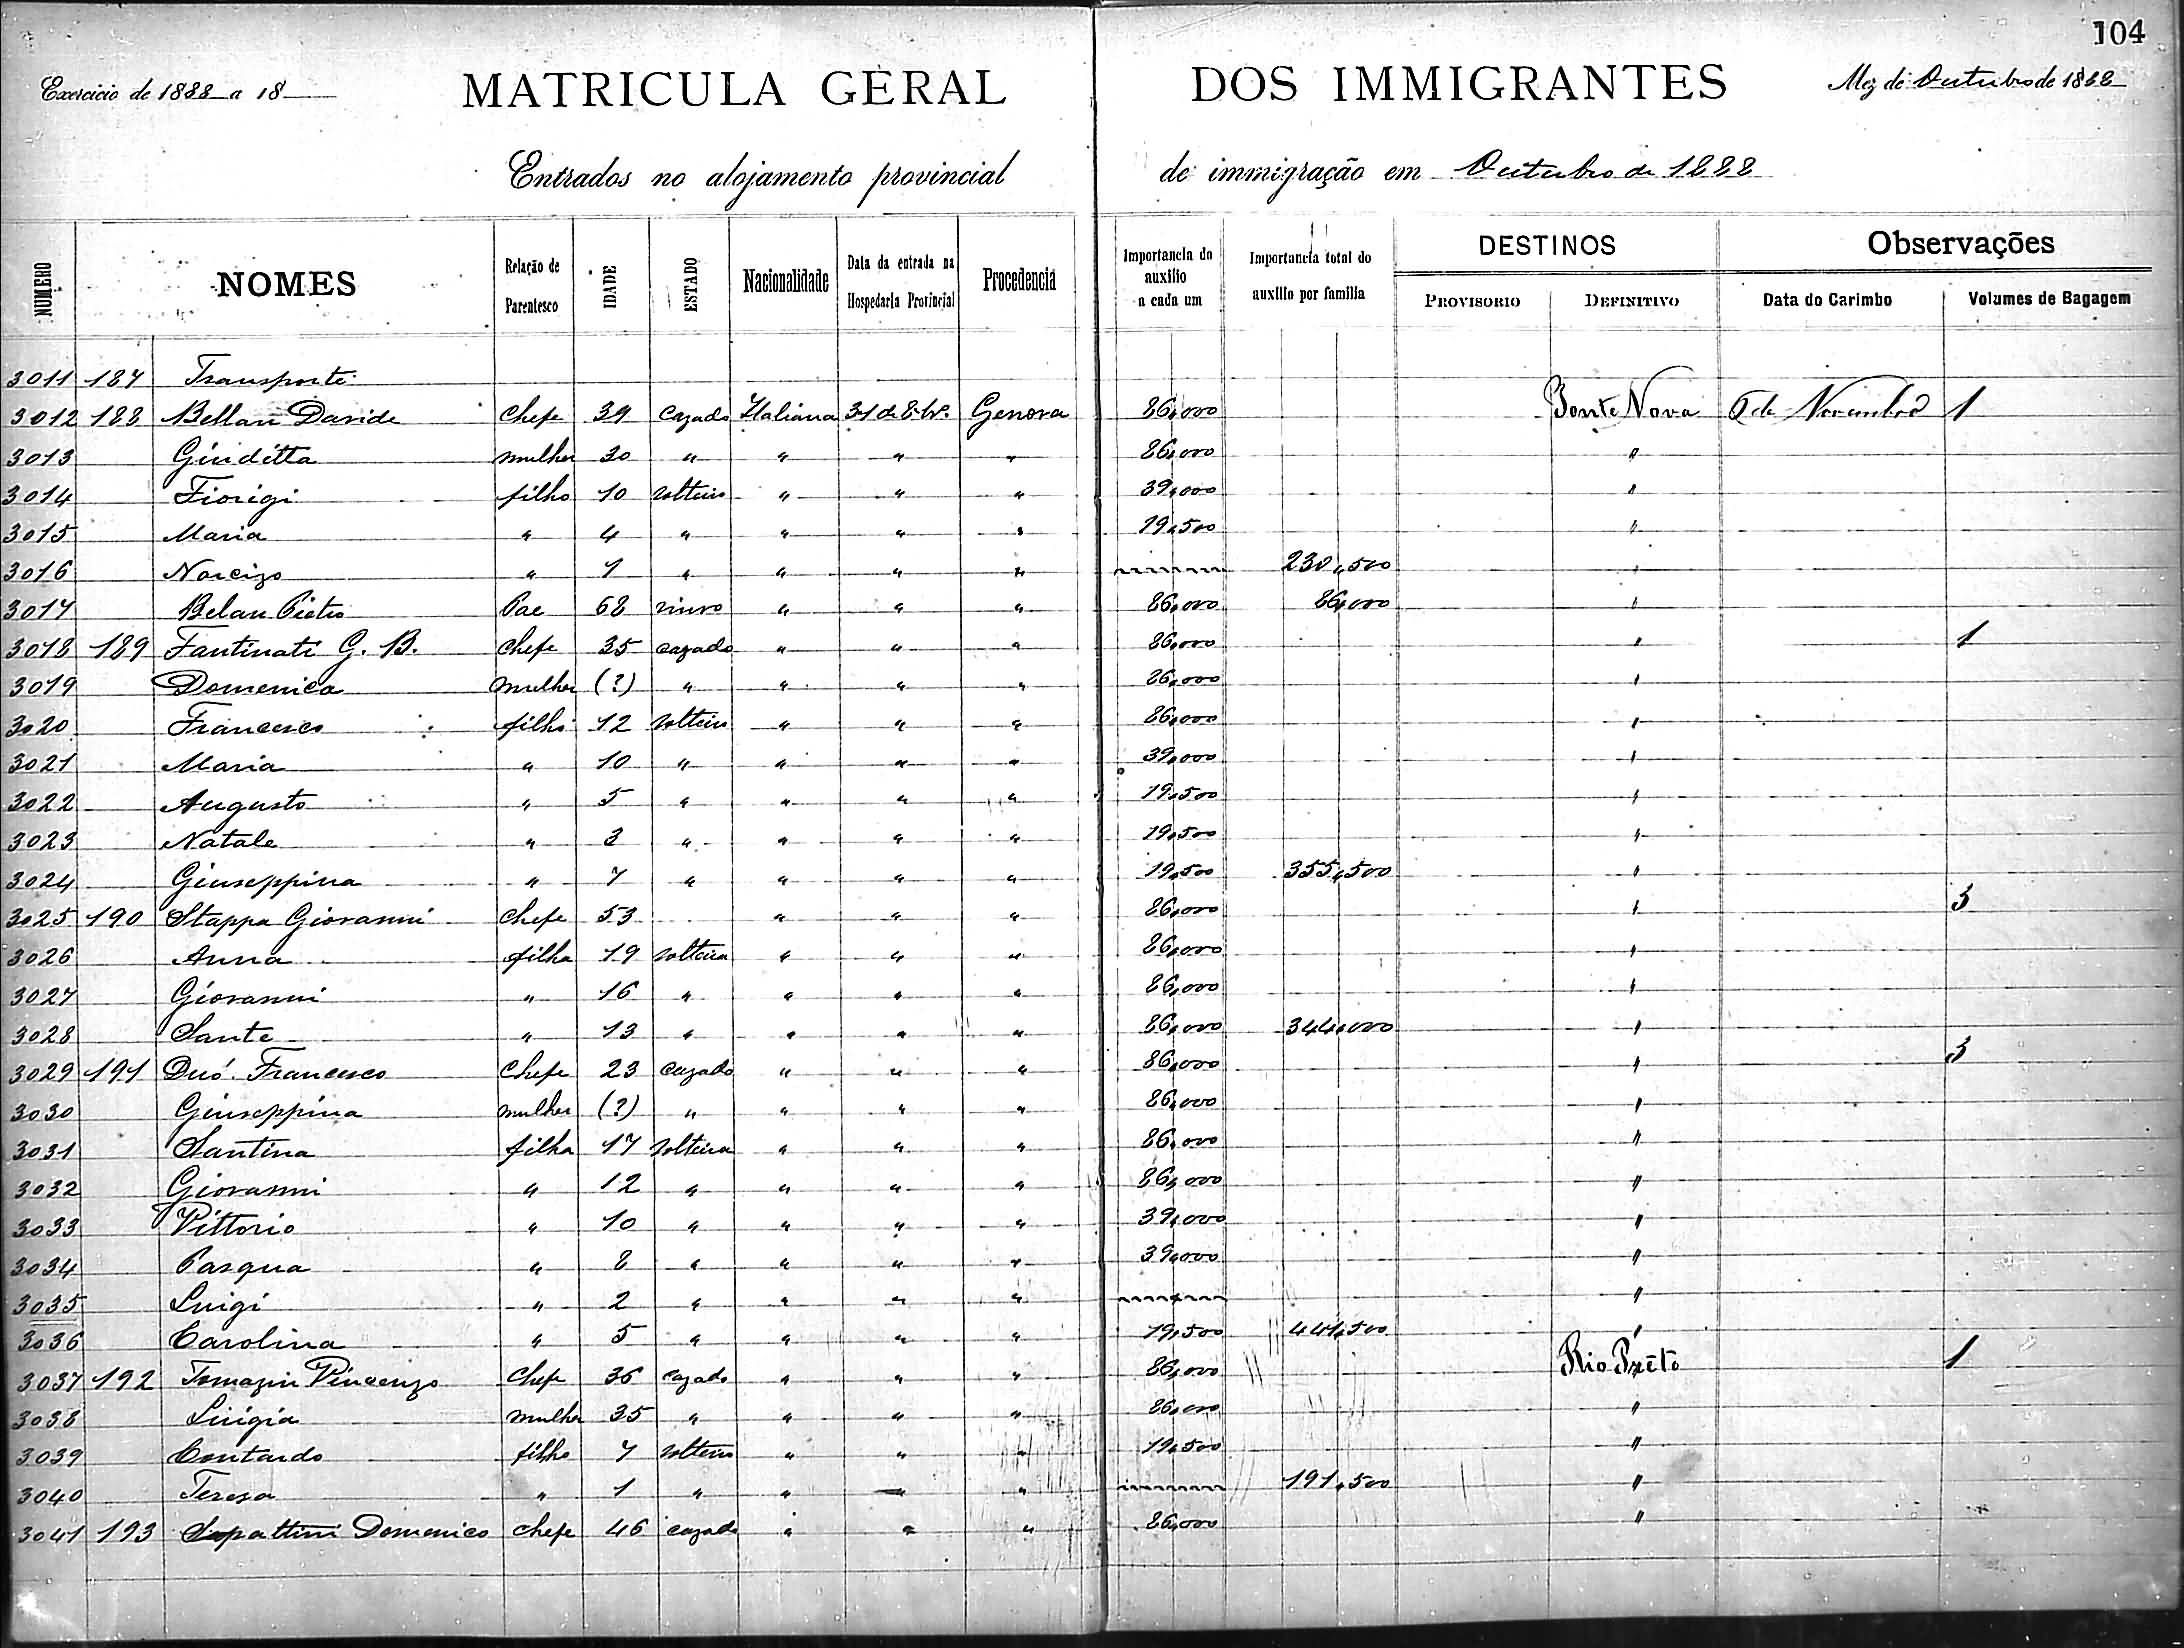 104
Exercicio de 1888 a 18
MATRICULA GERAL DOS IMMIGRANTES
Mez de Outubro de 1888
Entrados no alojamento provincial de immigração em Outubro de 1888
NUMERO NOMES Relação de Parentesco IDADE ESTADO Nacionalidade Data da entrada na Hospedaria Provincial Procedencia Importancia do auxilio a cada um Importancia total do auxilio por familia DESTINOS PROVISORIO DEFINITIVO Observações Data do Carimbo Volumes de Bagagem
3011 187 Transporte
3012 188 Bellan Davide Chefe 39 cazado Italiana 31 de 8-br. Genova 86,000 Ponte Nova de Novembro 1
3013 Giuditta mulher 30 " " " " 86,000 "
3014 Fiorigi filho 10 solteiro " " " 39,000 "
3015 Maria " 4 " " " " 19,500 "
3016 Narcizo " 1 " " " " 230,500 "
3017 Belan Pietro Pae 68 viuvo " " " 86,000 86,000 "
3018 189 Fantinati G. B. chefe 35 cazado " " " 86,000 " 1
3019 Domenica mulher (?) " " " " 86,000 "
3020 Francesco filho 12 solteiro " " " 86,000 "
3021 Maria " 10 " " " " 39,000 "
3022 Augusto " 5 " " " " 19,500 "
3023 Natale " 3 " " " " 19,500 "
3024 Giuseppina " 7 " " " " 19,500 355,500 "
3025 190 Stappa Giovanni Chefe 53 " " " 86,000 " 3
3026 Anna filha 19 solteira " " " 86,000 "
3027 Giovanni " 16 " " " " 86,000 "
3028 Sante " 13 " " " " 86,000 344,000 "
3029 191 Duó Francesco Chefe 23 cazado " " " 86,000 " 3
3030 Giuseppina mulher (?) " " " " 86,000 "
3031 Santina filha 17 solteira " " " 86,000 "
3032 Giovanni " 12 " " " " 86,000 "
3033 Vittorio " 10 " " " " 39,000 "
3034 Pasqua " 8 " " " " 39,000 "
3035 Luigi " 2 " " " " "
3036 Carolina " 5 " " " " 19,500 441,500 "
3037 192 Tomazin Vincenzo Chefe 36 cazado " " " 86,000 Rio Prêto 1
3038 Luigia mulher 35 " " " " 86,000 "
3039 Contardo filho 7 solteiro " " " 19,500 "
3040 Teresa " 1 " " " " 191,500 "
3041 193 Domenico chefe 46 cazado " " " 86,000 "